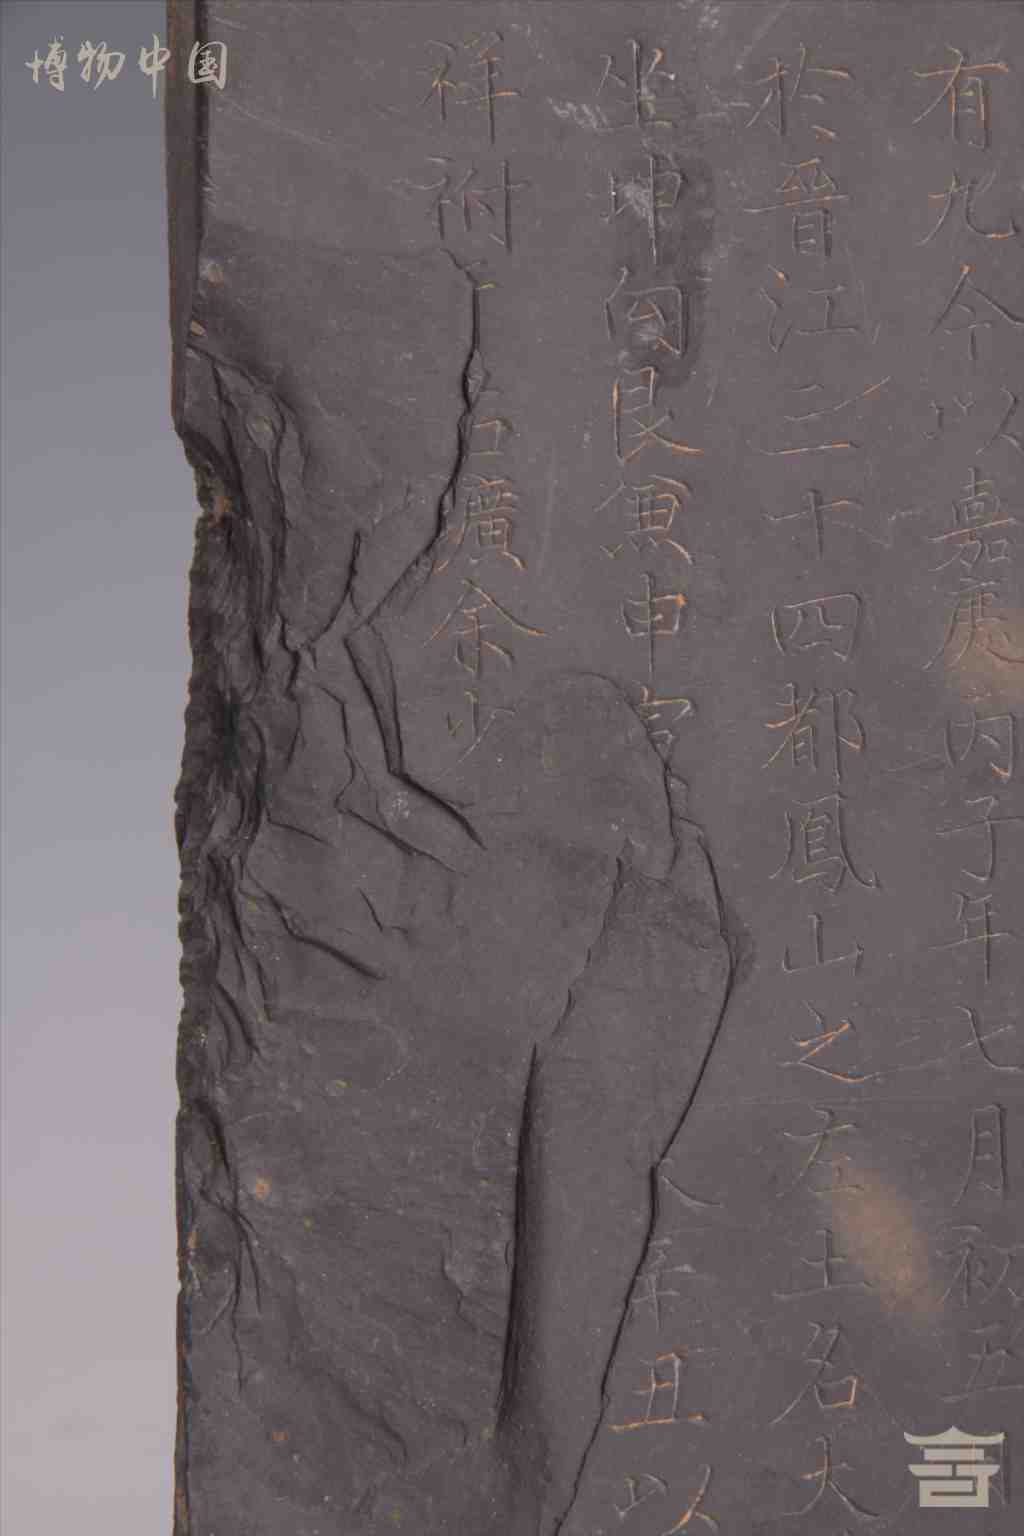 博物中国
有九今以嘉慶丙子年七月初五
於晉江三十四都鳳山之左土名大
坐坤向艮兼申 辛丑以
祥祔 廣余少